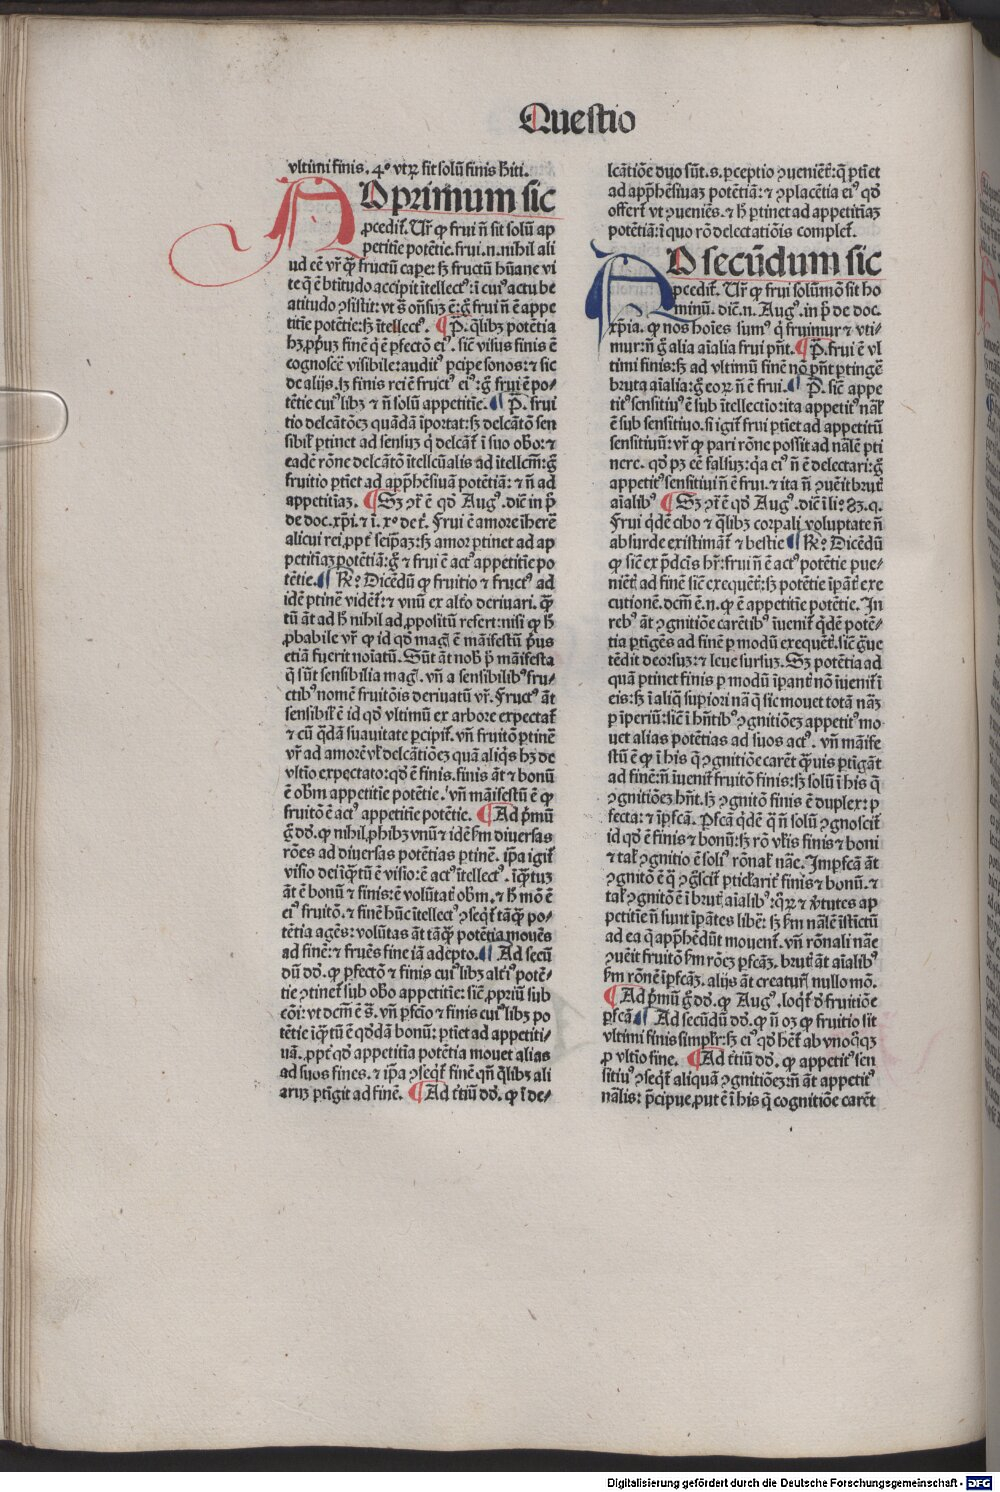 Questio
vltimi finis. 4º vtꝝ sit solū finis hīti.
AD primum sic
ꝓcedit̃. Ur̃ ꝙ frui ñ sit solū ap
petitie potētie. frui .n. nihil ali
ud eē vr̃ qꝫ fructū cape: sꝫ fructū hūane vi
te q̄ ē btitudo accipit ītellectꝰ: ī cuiꝰ actu be
atitudo ↄsistit: vt s̄ oñsuꝫ ē: gͦ frui ñ ē appe
titie potētie: sꝫ ītellectꝰ. ¶ P̄. qͥlibꝫ potētia
hꝫ ꝓpͥuꝫ finē qͥ ē ꝑfectō eiꝰ. sic̄ visus finis ē
cognoscē visibile: auditꝰ ꝑcipe sonos: ⁊ sic
de alijs. sꝫ finis rei ē fructꝰ eiꝰ: gͦ frui ē po-
tētie cuiꝰlibꝫ ⁊ ñ solū appetitie. ¶ P̄. frui
tio delcātōeꝫ quādā īportat: sꝫ delcātō sen
sibilꝭ ꝑtinet ad sensuꝫ qͥ delcāt̃ ī suo obō: ⁊
eadē rōne delcātō ītellcūalis ad ītellcm̄: gͦ
fruitio ꝑtiet ad app̄hēsiuam potētiā: ⁊ ñ ad
appetitiaꝫ. ¶ Sꝫ ↄͬ ē qͦ Augꝰ. dic̄ in pͦ
de doc. xp̄i. ⁊ ī. xº de t̃. Frui ē amore īherē
alicui rei ꝓpt̃ seip̄aꝫ: sꝫ amor ꝑtinet ad ap
petitiaꝫ potētiā: gͦ ⁊ frui ē actꝰ appetitie po
tētie. ¶ Rº. Dicēdū ꝙ fruitio ⁊ fructꝰ ad
idē ꝑtinē vidēt̃: ⁊ vnū ex altͦo deriuari. qͣ
tū āt ad h̄ nihil ad ꝓpositū refert: nisi ꝙ h̄
ꝓbabile vr̃ ꝙ id qͦ magͥ ē māifestū pͥus
etiā fuerit noīatū. Sūt āt nobͥ pͦ māifesta
q̄ sūt sensibilia magͥ. vñ a sensibilibꝰ fru-
ctibꝰ nomē fruitōis deriuatū vr̃. Fructꝰ āt
sensibilꝭ ē id qͦ vltimū ex arbore expectat̃
⁊ cū qͣdā suauitate ꝑcipit̃. vñ fruitō ꝑtinē
vr̃ ad amorē vl̓ delcātiōeꝫ quā aliqͥs hꝫ de
vltīo expectato: qͦ ē finis. finis āt ⁊ bonū
ē obm̄ appetitie potētie. vñ māifestū ē ꝙ
fruitō ē actꝰ appetitie potētie. ¶ Ad pͥmū
gͦ dͦ. ꝙ nihil ꝓhibꝫ vnū ⁊ idē ẜm diuersas
rōes ad diuersas potētias ꝑtinē. ip̄a igit̃
visio dei īqͣtū ē visio: ē actꝰ ītellectꝰ. īqͣtuꝫ
āt ē bonū ⁊ finis: ē volūtat̃ obm̄. ⁊ h̄ mō ē
eiꝰ fruitō. ⁊ finē hūc ītellectꝰ ↄseqͥt̃ tāqͣꝫ po-
tētia agēs: volūtas āt tāqͣꝫ potētia mouēs
ad finē: ⁊ fruēs fine iā adepto. ¶ Ad secū
dū dͦ. ꝙ ꝑfectō ⁊ finis cuiꝰlibꝫ altͥiꝰ potē-
tie ↄtinet̃ sub obō appetitie: sic̄ ꝓpͥū sub
cōi: vt dcm̄ ē s̄. vñ ꝑfcīo ⁊ finis cuiꝰlibꝫ po
tētie īqͣtū ē qͦdā bonū: ꝑtiet ad appetiti-
uā. ꝓpt̃ qͦ appetitia potētia mouet alias
ad suos fines. ⁊ ip̄a ↄseqͥt̃ finē qñ qͥlibꝫ ali
aruꝫ ꝑtigit ad finē. ¶ Ad t̃tiū dͦ. ꝙ ī de-
lcātiōe duo sūt. s. ꝑceptio ↄueniēt̃: q̄ ꝑtiet
ad app̄hēsiuaꝫ potētiā: ⁊ ↄplacētia eiꝰ qͦ
offert̃ vt ↄueniēs. ⁊ h̄ ꝑtinet ad appetitiaꝫ
potētiā: ī quo rō delectatiōis complet̃.
AD secūdum sic
ꝓcedit̃. Ur̃ ꝙ frui solūmō sit ho
minū. dic̄ .n. Augꝰ. in pͦ de doc.
xp̄ia. ꝙ nos hoīes sumꝰ qͥ fruimur ⁊ vti-
mur: ñ gͦ alia aīalia frui pñt. ¶ P̄. frui ē vl
timi finis: sꝫ ad vltimū finē nō pñt ꝑtingē
bruta aīalia: gͦ eoꝝ ñ ē frui. ¶ P̄. sic̄ appe
titꝰ sensitiuꝰ ē sub ītellectio: ita appetitꝰ nālꝭ
ē sub sensitiuo. si igit̃ frui ꝑtiet ad appetitū
sensitiuū: vr̃ ꝙ pari rōne possit ad nālē ꝑti
nere. qͦ pꝫ eē falsuꝫ: qꝛ eiꝰ ñ ē delectari: gͦ
appetitꝰ sensitiui ñ ē frui. ⁊ ita ñ ↄuēit brut̃
aīalibꝰ ¶ Sꝫ ↄͬ ē qͦ Augꝰ. dic̄ ī liº 83. q.
Frui qͥdē cibo ⁊ qͣlibꝫ corpali voluptate ñ
absurde existimāt̃ ⁊ bestie ¶ Rº. Dicēdū
ꝙ sic̄ ex p̄dcīs hr̃: frui ñ ē actꝰ potētie ꝑue-
niēt̃ ad finē sic̄ exequēt̃: sꝫ potētie īꝑāt̃ exe
cutionē. dcm̄ ē .n. ꝙ ē appetitie potētie. In
rebꝰ āt ↄgnitiōe carētibꝰ īuenit̃ qͥdē potē-
tia ꝑtīgēs ad finē ꝑ modū exequēt̃. sic̄ gͣue
tēdit deorsuꝫ: ⁊ leue sursuꝫ. Sꝫ potētia ad
quā ꝑtinet finis ꝑ modū īꝑant̃ nō īuenit̃ ī
eis: sꝫ ī aliqͣ supīori nā q̄ sic mouet totā nāꝫ
ꝑ īperiū: sic̄ ī hñtibꝰ ↄgnitiōeꝫ appetitꝰ mo
uet alias potētias ad suos actꝰ. vñ māife
stū ē ꝙ ī his q̄ ↄgnitiōe carēt qͣuis ꝑtīgāt
ad finē: ñ īuenit̃ fruitō finis: sꝫ solū ī his q̄
ↄgnitiōeꝫ hñt. sꝫ ↄgnitō finis ē duplex: ꝑ
fecta: ⁊ īꝑfcā. Ꝑfcā qͥdē qͣ ñ solū ↄgnoscit̃
id qͦ ē finis ⁊ bonū: sꝫ rō vl̓is finis ⁊ boni
⁊ talꝭ ↄgnitio ē soliꝰ rōnalꝭ nāe. Imꝑfcā āt
ↄgnitō ē qͣ ↄgͦscit̃ ꝑticularit̃ finis ⁊ bonū. ⁊
talꝭ ↄgnitō ē ī brut̃ aīalibꝰ: qͥꝝ ⁊ v̓tutes ap
petitie ñ sunt īꝑātes libē: sꝫ ẜm nālē īstīctū
ad ea q̄ app̄hēdūt mouent̃. vñ rōnali nāe
ↄuēit fruitō ẜm rōeꝫ ꝑfcāꝫ. brut̃ āt aīalibꝰ
ẜm rōnē īꝑfcāꝫ. alijs āt creaturꝭ nullo mō.
¶ Ad pͥmū gͦ dͦ. ꝙ Augꝰ. loqͥt̃ d̓ fruitiōe
ꝑfcā ¶ Ad secūdū dͦ. ꝙ ñ oꝫ ꝙ fruitio sit
vltimi finis simplr̃: sꝫ eiꝰ qͦ hēt̃ ab vnoqͦqꝫ
ꝓ vltīo fine. ¶ Ad t̃tiū dͦ. ꝙ appetitꝰ sen
sitiuꝰ ↄseqͥt̃ aliquā ↄgnitiōeꝫ: ñ āt appetitꝰ
nālis: p̄cipue ꝓut ē ī his q̄ cognitiōe carēt
Digitalisierung gefördert durch die Deutsche Forschungsgemeinschaft - DFG